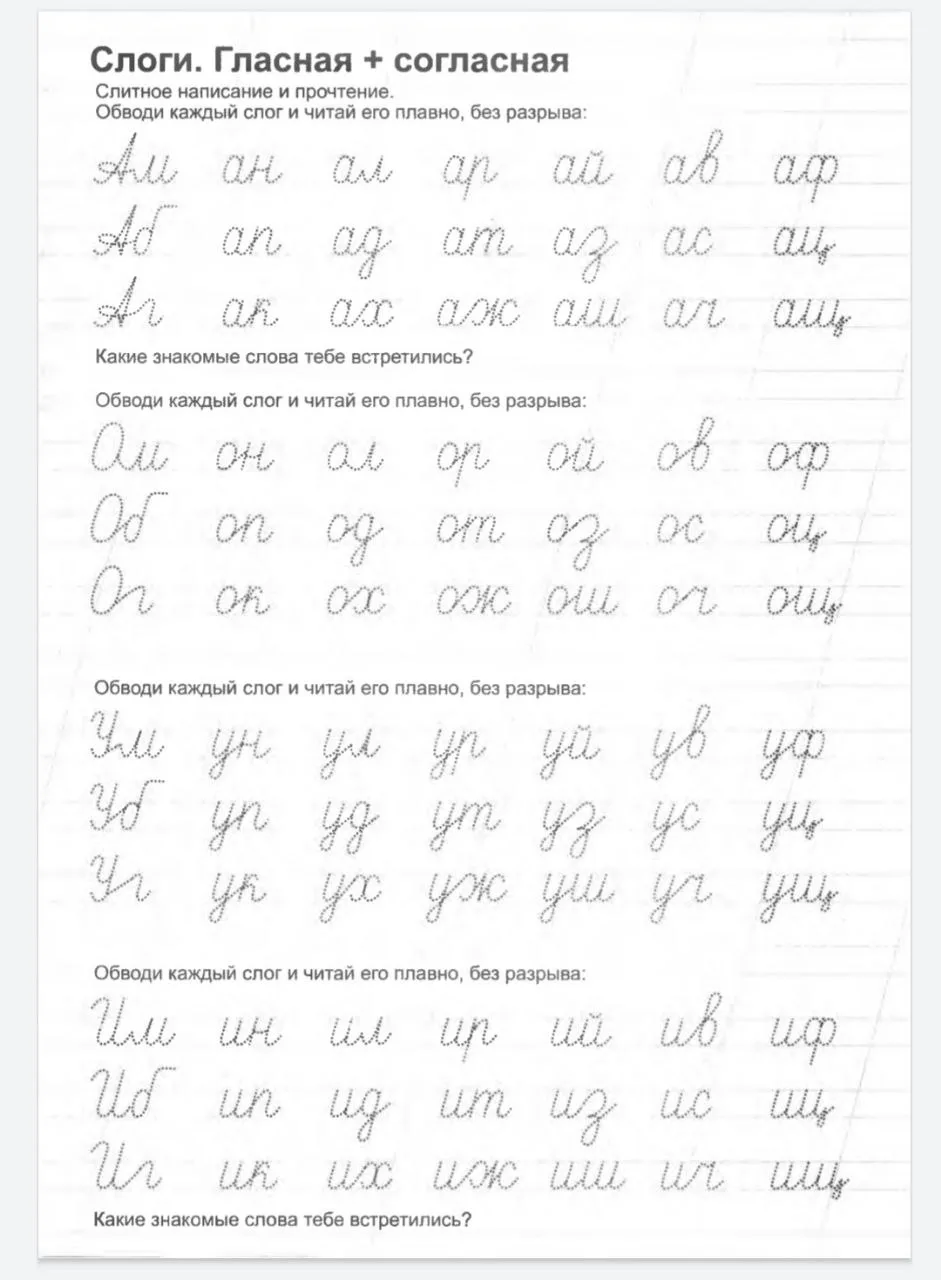 Слоги. Гласная + согласная
Слитное написание и прочтение.
Обводи каждый слог и читай его плавно, без разрыва:
Ам ан ал ар ай ав аф
Аб ап ад ат аз ас ац
Аг ак ах аж аш ач ащ
Какие знакомые слова тебе встретились?
Обводи каждый слог и читай его плавно, без разрыва:
Ом он ол ор ой ов оф
Об оп од от оз ос оц
Ог ок ох ож ош оч ощ
Обводи каждый слог и читай его плавно, без разрыва:
Ум ун ул ур уй ув уф
Уб уп уд ут уз ус уц
Уг ук ух уж уш уч ущ
Обводи каждый слог и читай его плавно, без разрыва:
Им ин ил ир ий ив иф
Иб ип ид ит из ис иц
Иг ик их иж иш ич ищ
Какие знакомые слова тебе встретились?